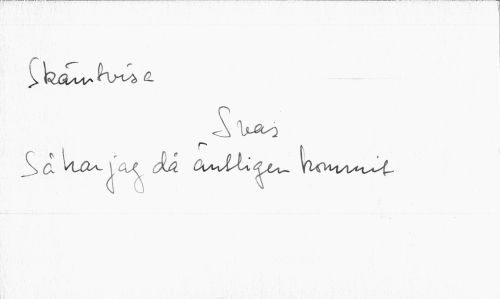 Skämtvisa
Svar
Så har jag då äntligen kommit